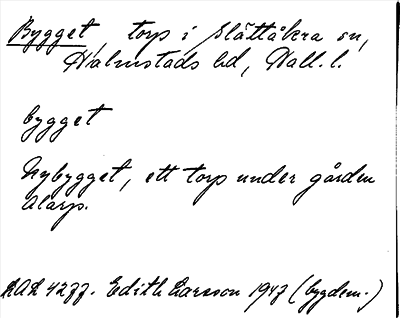 Bygget, torp i Slättåkra sn,
Halmstads hd, Hall. l.
bygget
Nybygget, ett torp under gården
Alarp.
4277. Edith Larsson 1947 (bygdem.)